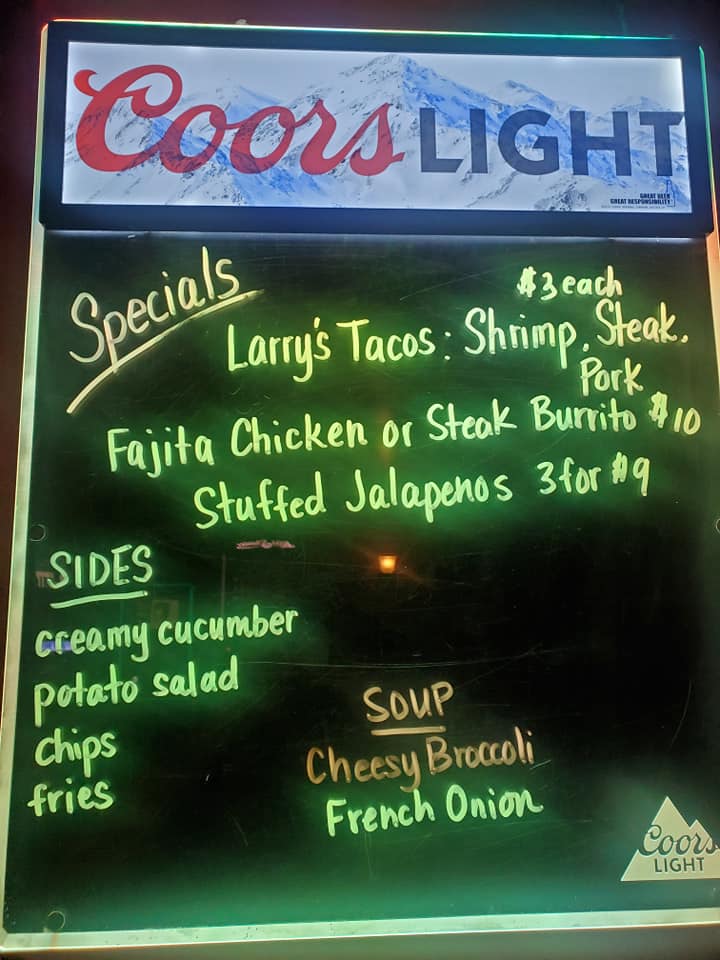 Coors LIGHT
GREAT BEER
GREAT RESPONSIBILITY
Specials
$3 each
Larry's Tacos: Shrimp, Steak,
Pork
Fajita Chicken or Steak Burrito $10
Stuffed Jalapenos 3 for $9
SIDES
creamy cucumber
potato salad
chips
fries
SOUP
Cheesy Broccoli
French Onion
Coors
LIGHT